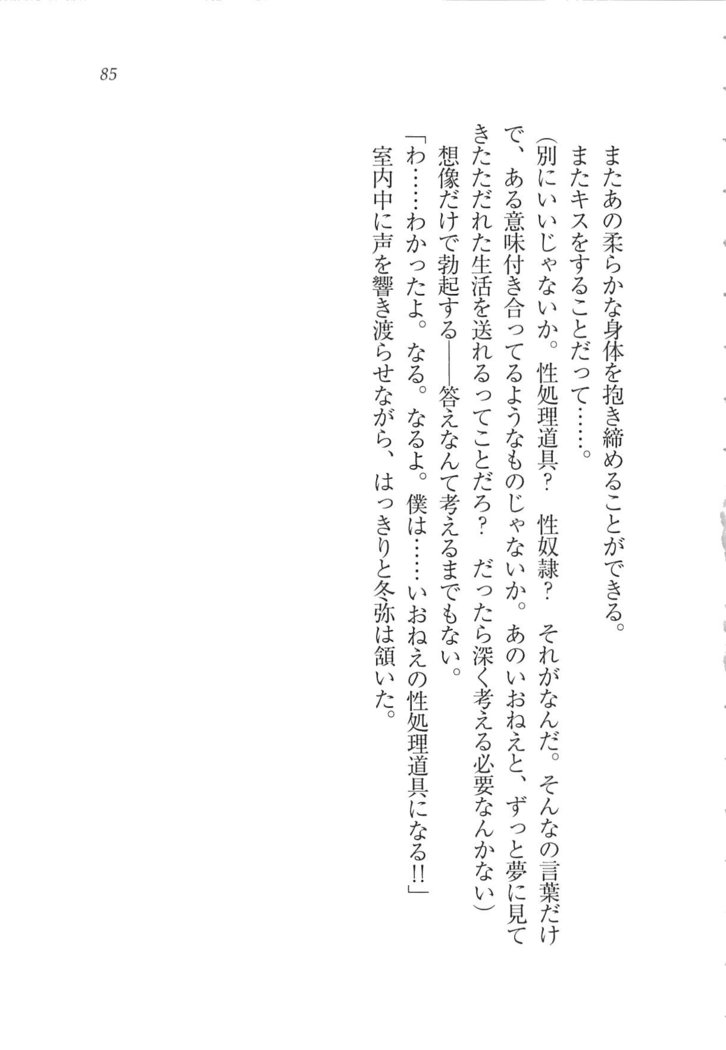 85
またあの柔らかな身体を抱き締めることができる。
またキスをすることだって……。
(別にいいじゃないか。性処理道具？　性奴隷？　それがなんだ。そんなの言葉だけ
で、ある意味付き合ってるようなものじゃないか。あのいおねえと、ずっと夢に見て
きたただれた生活を送れるってことだろ？　だったら深く考える必要なんかない)
想像だけで勃起する――答えなんて考えるまでもない。
「わ……わかったよ。なる。なるよ。僕は……いおねえの性処理道具になる!!」
室内中に声を響き渡らせながら、はっきりと冬弥は頷いた。